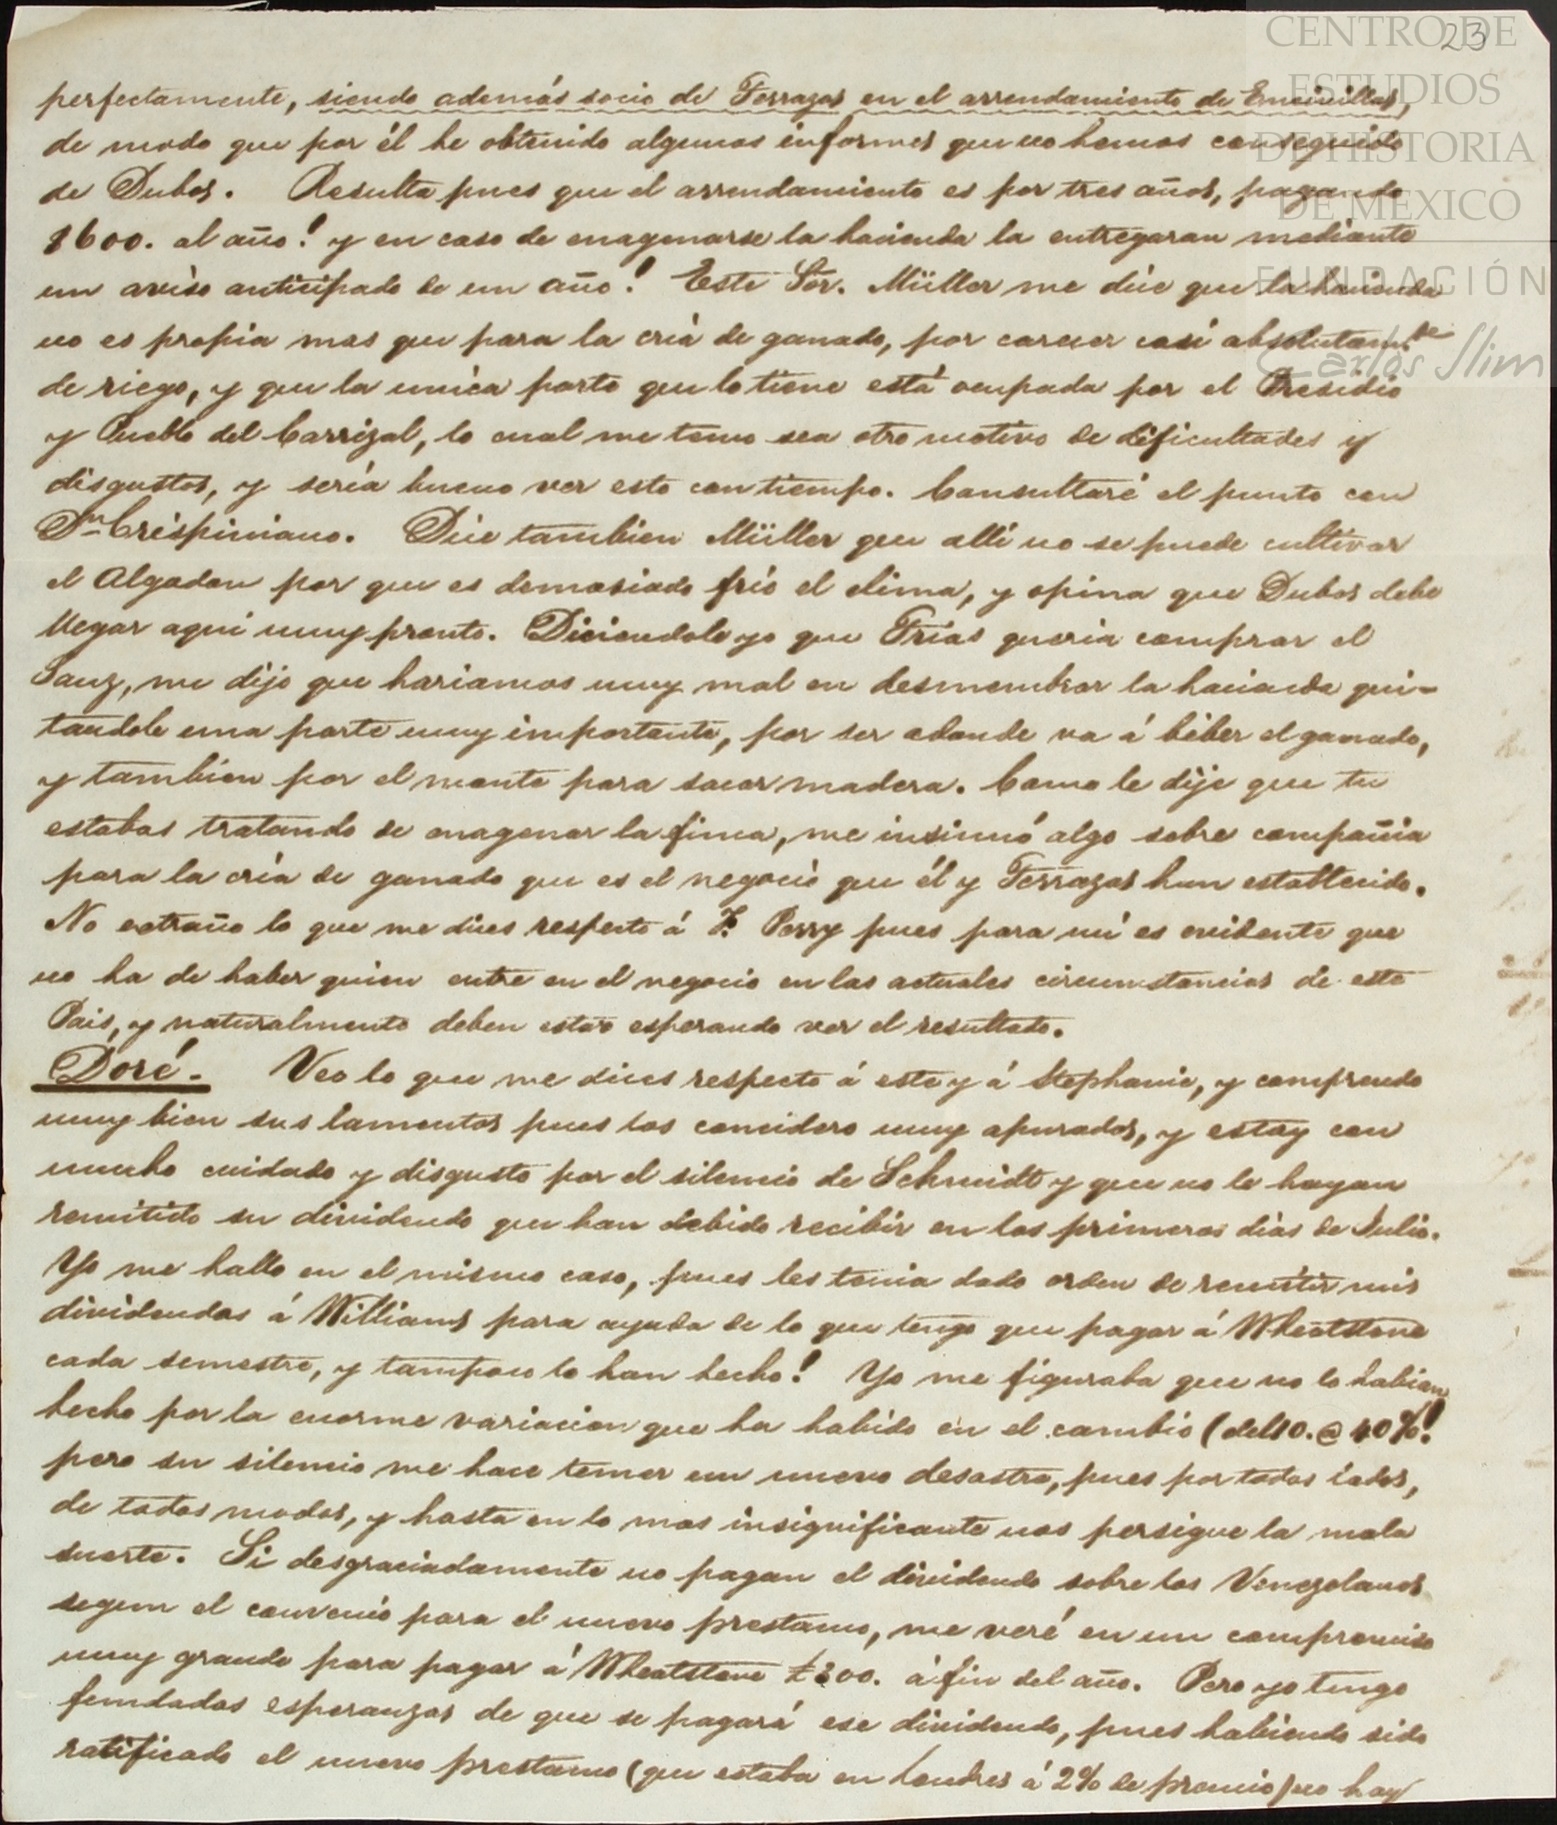 23
CENTRO DE
ESTUDIOS
DE HISTORIA
DE MÉXICO
FUNDACIÓN
Carlos Slim
perfectamente, siendo además socio de Terrazas en el arrendamiento de Encinillas,
de modo que por él he obtenido algunos informes que no hemos conseguido
de Dubos. Resulta pues que el arrendamiento es por tres años, pagando
$600. al año! y en caso de enagenarse la hacienda la entregaran mediante
un aviso anticipado de un año! Este Sor. Müller me dice que la hacienda
no es propia mas que para la cría de ganado, por carecer casi absolutamte
de riego, y que la unica parte que lo tiene está ocupada por el Presidio
y Pueblo del Carrizal, lo cual me temo sea otro motivo de dificultades y
disgustos, y sería bueno ver esto con tiempo. Consultaré el punto con
Dn Crispiniano. Dice tambien Müller que allí no se puede cultivar
el Algodon por que es demasiado frío el clima, y opina que Dubos debe
llegar aqui muy pronto. Diciendole yo que Frias queria comprar el
Sauz, me dijo que hariamos muy mal en desmembrar la hacienda qui-
tandole una parte muy importante, por ser adonde va á beber el ganado,
y tambien por el monte para sacar madera. Como le dije que tu
estabas tratando de enagenar la finca, me insinuó algo sobre compañia
para la cría de ganado que es el negocio que él y Terrazas han establecido.
No extraño lo que me dices respecto á F. Perry pues para mí es evidente que
no ha de haber quien entre en el negocio en las actuales circumstancias de este
Pais, y naturalmente deben estar esperando ver el resultado.
Doré. Veo lo que me dices respecto á este y á Stephanie, y comprendo
muy bien sus lamentos pues los concidero muy apurados, y estoy con
mucho cuidado y disgusto por el silencio de Schmidt y que no le hayan
remitido su dividendo que han debido recibir en los primeros dias de Julio.
Yo me hallo en el mismo caso, pues les tenia dado orden de remitir mis
dividendos á Williams para ayuda de lo que tengo que pagar á Wheatstone
cada semestre, y tampoco lo han hecho! Yo me figuraba que no lo habian
hecho por la enorme variacion que ha habido en el cambio (del 10. @ 40%!
pero su silencio me hace temer un nuevo desastre, pues por todos lados,
de todos modos, y hasta en lo mas insignificante nos persigue la mala
suerte. Si desgraciadamente no pagan el dividendo sobre los Venezolanos
segun el convenio para el nuevo prestamo, me veré en un compromiso
muy grande para pagar á Wheatstone £300. á fin del año. Pero yo tengo
fundadas esperanzas de que se pagará ese dividendo, pues habiendo sido
ratificado el nuevo prestamo (que estaba en Londres á 2% de premio) no hay